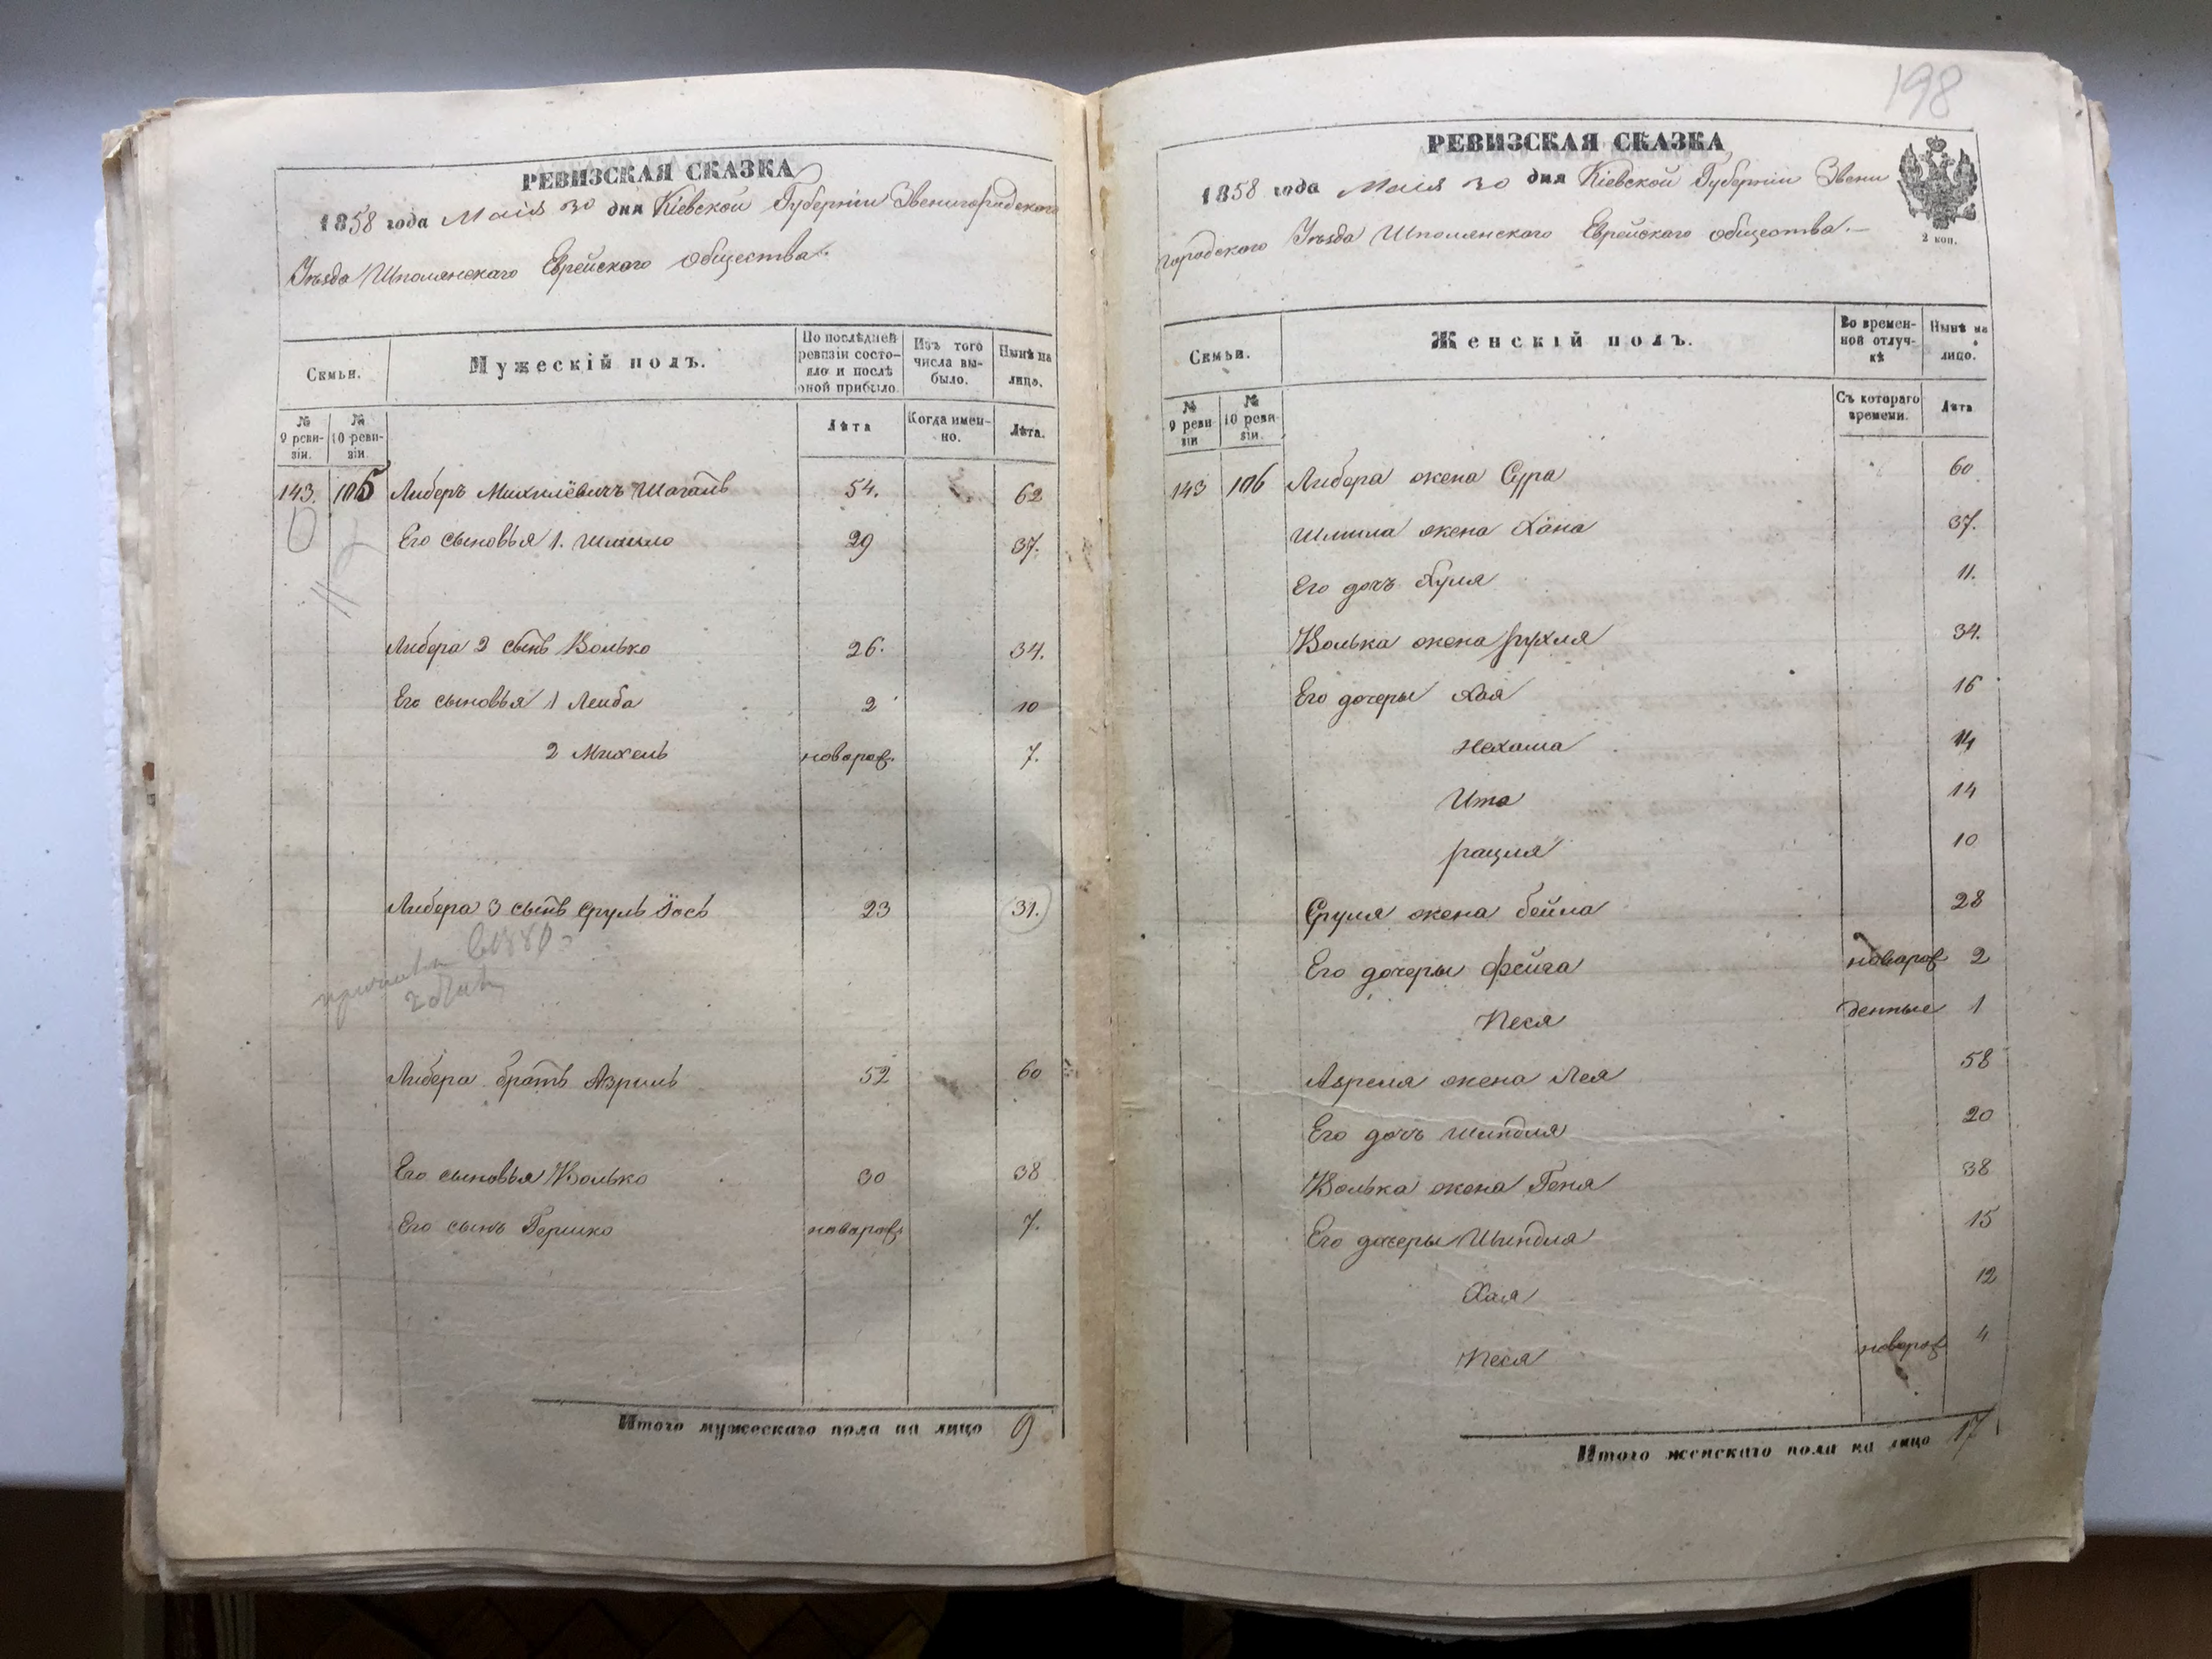 РЕВИЗСКАЯ СКАЗКА
1858 года Маія 30 дня Кіевской Губерніи Звенигородского
Уѣзда Шполянскаго Еврейского общества.
Семьи.
Мужескій полъ.
По послѣдней ревизіи состояло и послѣ оной прибыло.
Изъ того числа выбыло.
Нынѣ на лицо.
№ 9 ревизіи.
№ 10 ревизіи.
Лѣта
Когда именно.
Лѣта.
143. 105 Либеръ Михилёвичъ 54. 62
Его сыновья 1. Шмило 29 37.
Либера 2 сынъ Волько 26. 34.
Его сыновья 1 Лейба 2 10
2 Михель новорож. 7.
Либера 3 сынъ Сруль Іось 23 31.
Либера братъ Азриль 52 60
Его сыновья Волько 30 38
Его сынъ Гершко новорож. 7.
Итого мужескаго пола на лицо 9
198
РЕВИЗСКАЯ СКАЗКА
1858 года Маія 30 дня Кіевской Губерніи Звени
городского Уѣзда Шполянского Еврейского общества.—
2 коп.
Семьи.
Женскій полъ.
Во временной отлучкѣ
Нынѣ на лицо.
№ 9 ревизіи
№ 10 ревизіи.
Съ котораго времени.
Лѣта
143 106 Либера жена Сура 60
Шмила жена Хана 37.
Его дочъ 11.
Волька жена Рухля 34.
Его дочеры Хая 16
Нехама 14
Ита 14
Рацля 10
Сруля жена Бейла 28
Его дочеры Фейга новорож 2
Песя денные 1
Азреля жена Лея 58
Его дочъ Шиндля 20
Волька жена Геня 38
Его дочеры Шиндля 15
Хая 12
Песя новорож 4
Итого женскаго пола на лицо 17